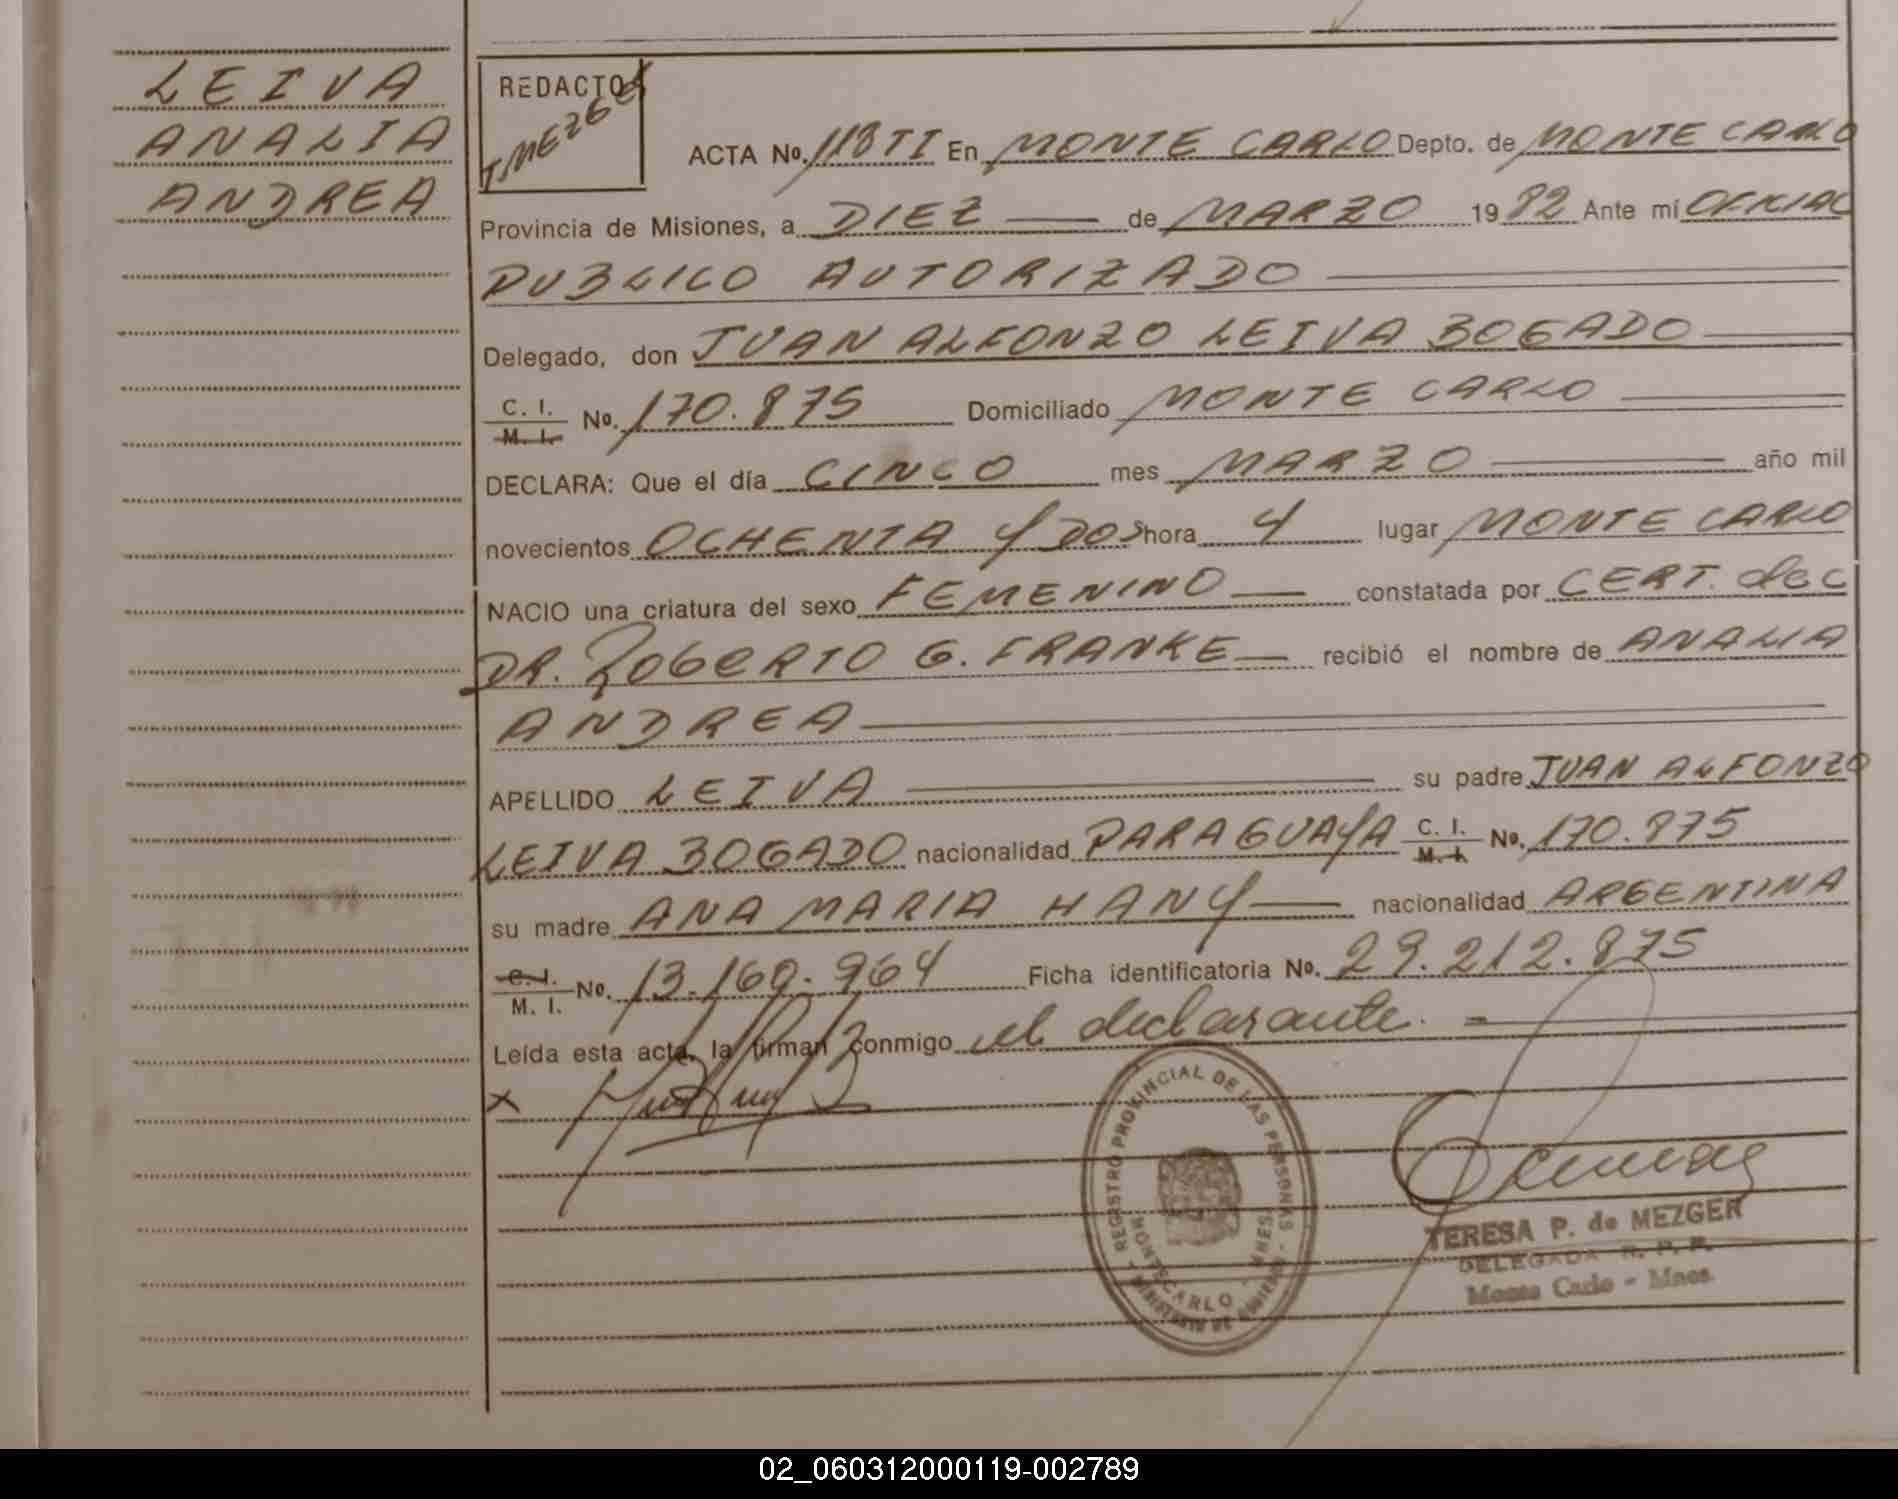 LEIVA
ANALIA
ANDREA
REDACTOR
TMEZGER
ACTA No. 118 TI En MONTE CARLO Depto. de MONTE CARLO
Provincia de Misiones, a DIEZ de MARZO 1982 Ante mí OFICIAL
PUBLICO AUTORIZADO
Delegado, don JUAN ALFONZO LEIVA BOGADO
C. I. M. I. No. 170.875 Domiciliado MONTE CARLO
DECLARA: Que el día CINCO mes MARZO año mil
novecientos OCHENTA Y DOS hora 4 lugar MONTE CARLO
NACIO una criatura del sexo FEMENINO constatada por CERT. del
DR. ROBERTO G. FRANKE recibió el nombre de ANALIA
ANDREA
APELLIDO LEIVA su padre JUAN ALFONZO
LEIVA BOGADO nacionalidad PARAGUAYA C. I. M. I. No. 170.875
su madre ANA MARIA HANY nacionalidad ARGENTINA
C. I. M. I. No. 13.160.964 Ficha identificatoria No. 29.212.875
Leída esta acta, la firman conmigo el declarante.
x
REGISTRO PROVINCIAL DE LAS PERSONAS - MINISTERIO DE GOBIERNO -
MONTECARLO - MNES.
TERESA P. de MEZGER
DELEGADA R. P. P.
Monte Carlo - Mnes.
02_060312000119-002789